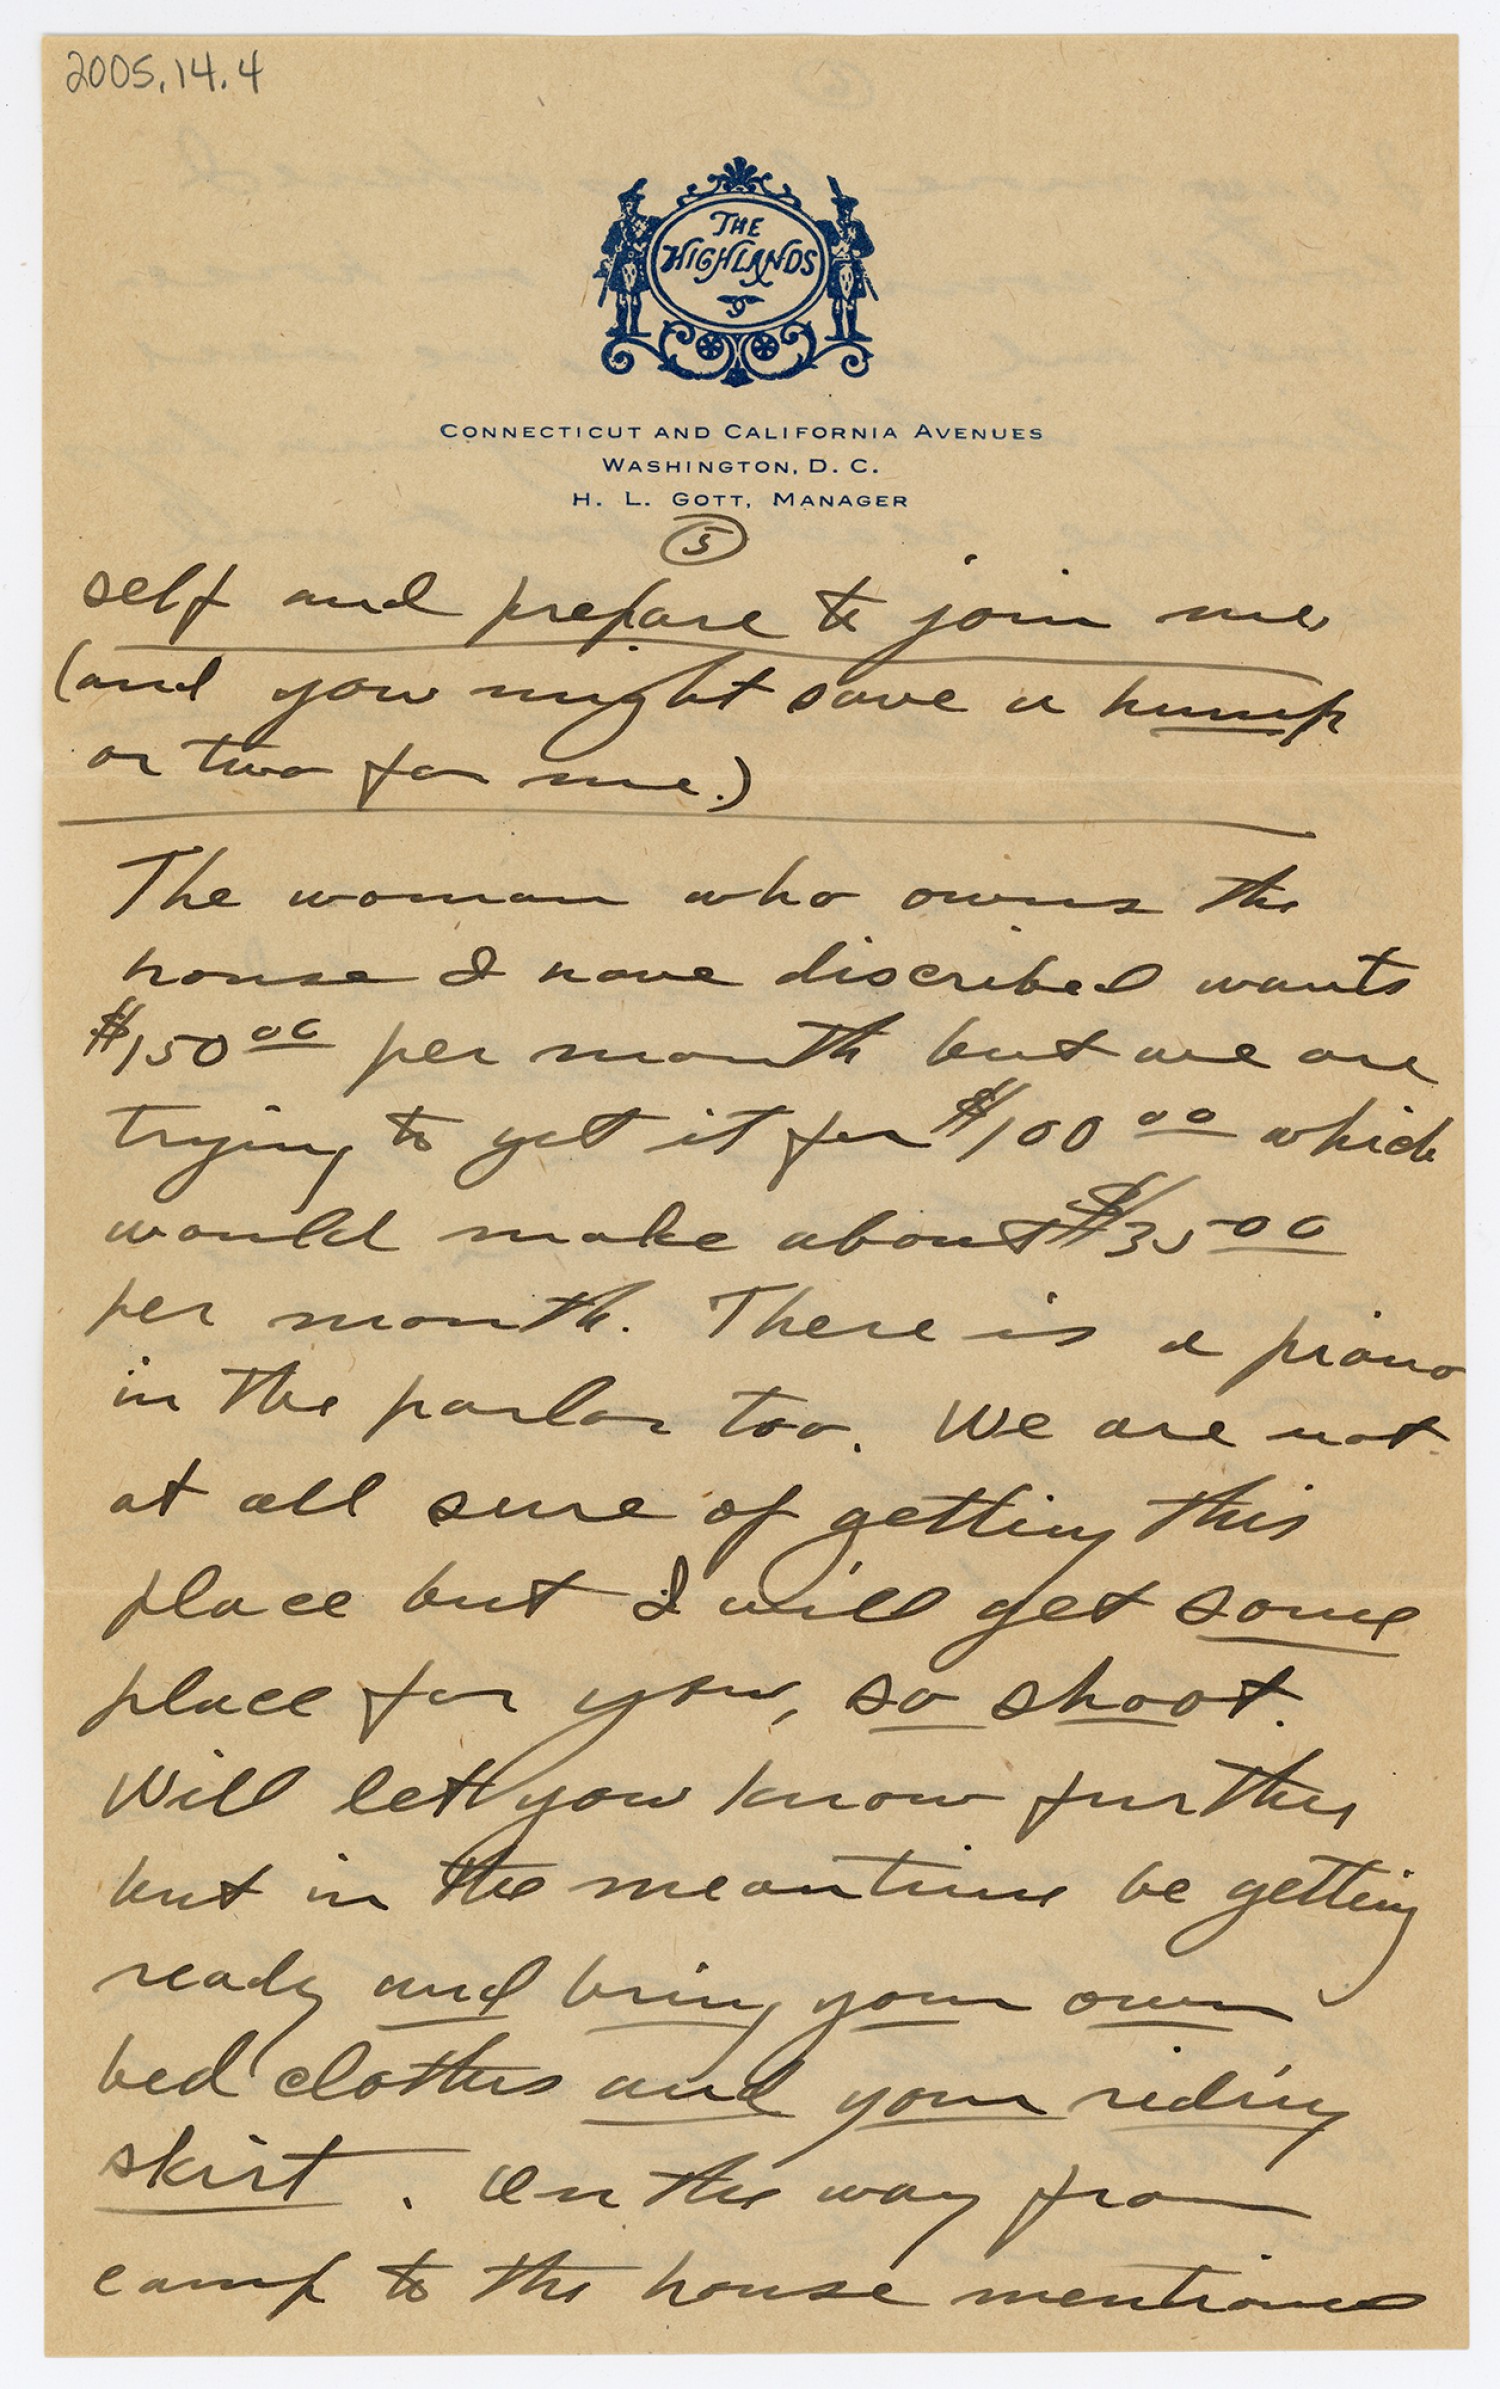 2005.14.4
THE
HIGHLANDS
CONNECTICUT AND CALIFORNIA AVENUES
WASHINGTON, D. C.
H. L. GOTT, MANAGER
5
self and prepare to join me
(and you might save a hump
or two for me.)
The woman who owns the
house I have discribed wants
$150 00 per month but we are
trying to get it for $100 00 which
would make about $35 00
per month. There is a piano
in the parlor too. We are not
at all sure of getting this
place but I will get some
place for you, so shoot.
Will let you know further
but in the meantime be getting
ready and bring your own
bed clothes and your riding
skirt. On the way from
camp to the house mentioned